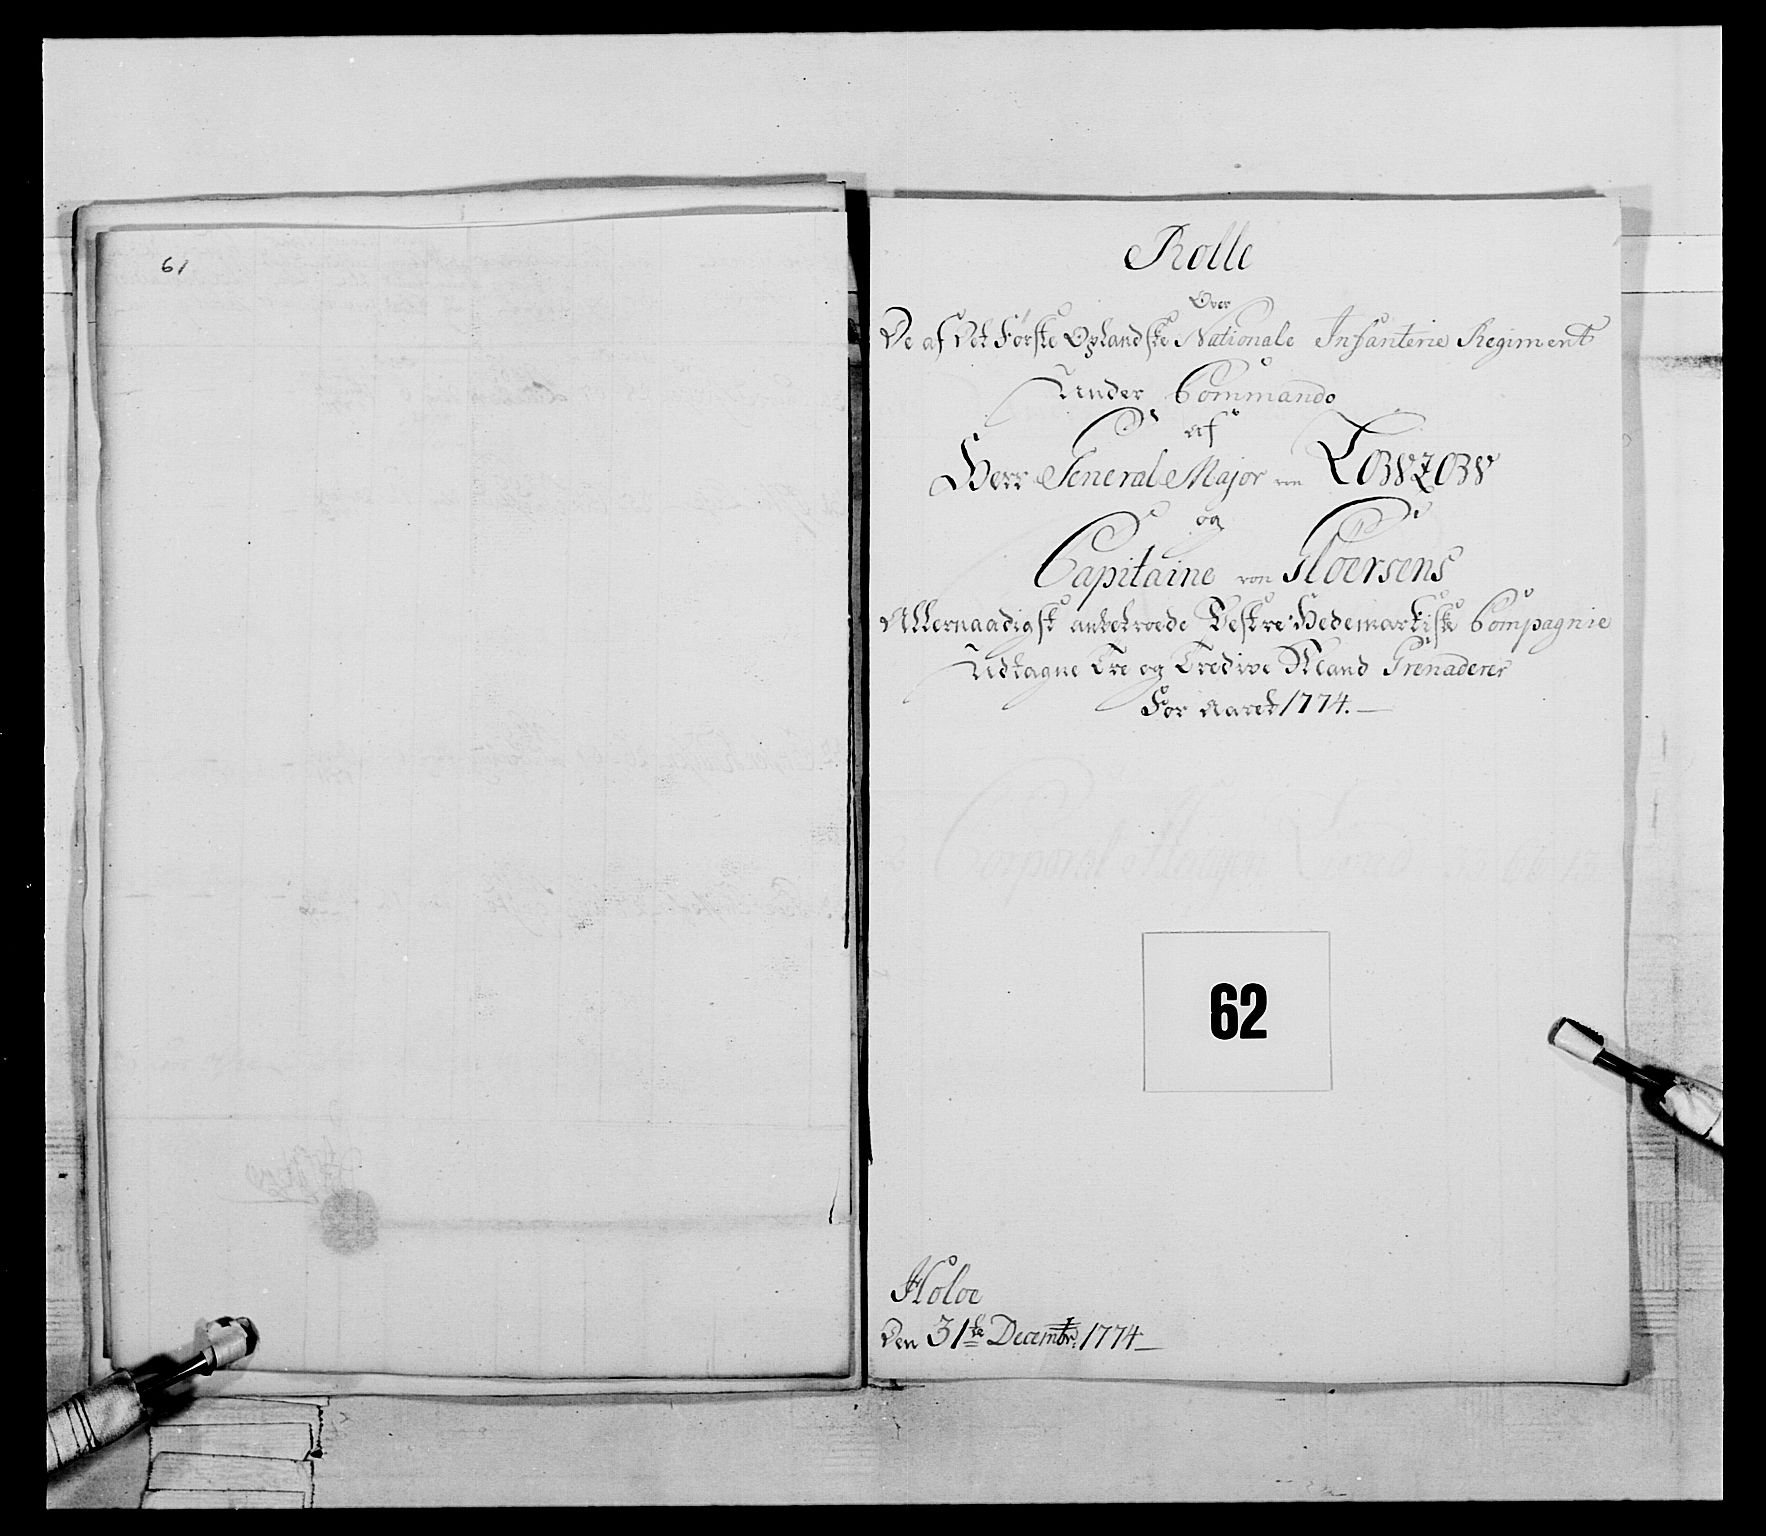 61
Rolle
Over
De af Det Første Oplandske Nationale Infanterie Regiment
Under Commando
af
Herr General Major von Lowzow
og
Capitaine von
Allernaadigst anbetroede Vestre Hedemarkiske Compagnie
Udtagne Tre og Tredive Mand Grenaderer
For Aaret 1774.
Corporal
62
Holoe
Den 31te Decembr: 1774